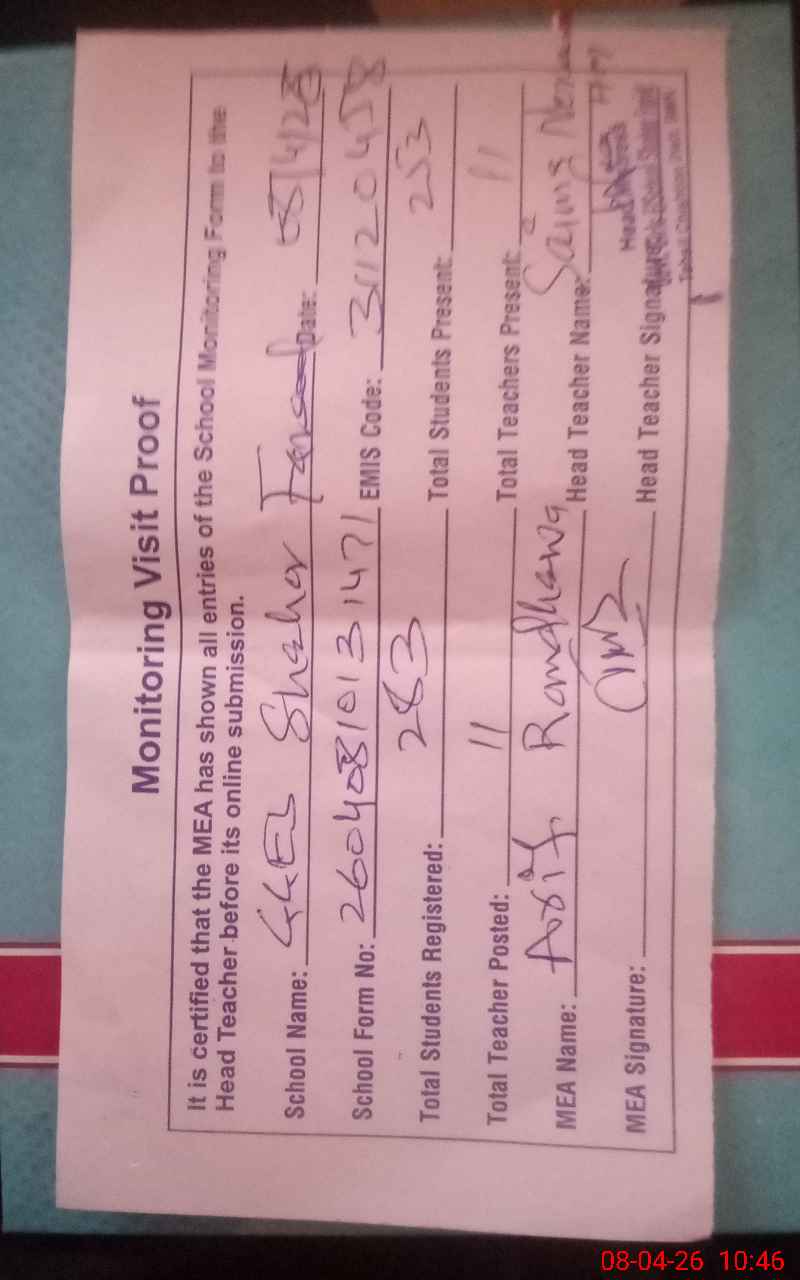 Monitoring Visit Proof
It is certified that the MEA has shown all entries of the School Monitoring Form to the
Head Teacher before its online submission.
School Name: GGES Shaher Fareed Date:
School Form No: 26040810131471 EMIS Code: 31120458
Total Students Registered: 283 Total Students Present: 253
Total Teacher Posted: 11 Total Teachers Present: 11
MEA Name: Asif Randhawa Head Teacher Name:
MEA Signature: Head Teacher Signature
08-04-26 10:46